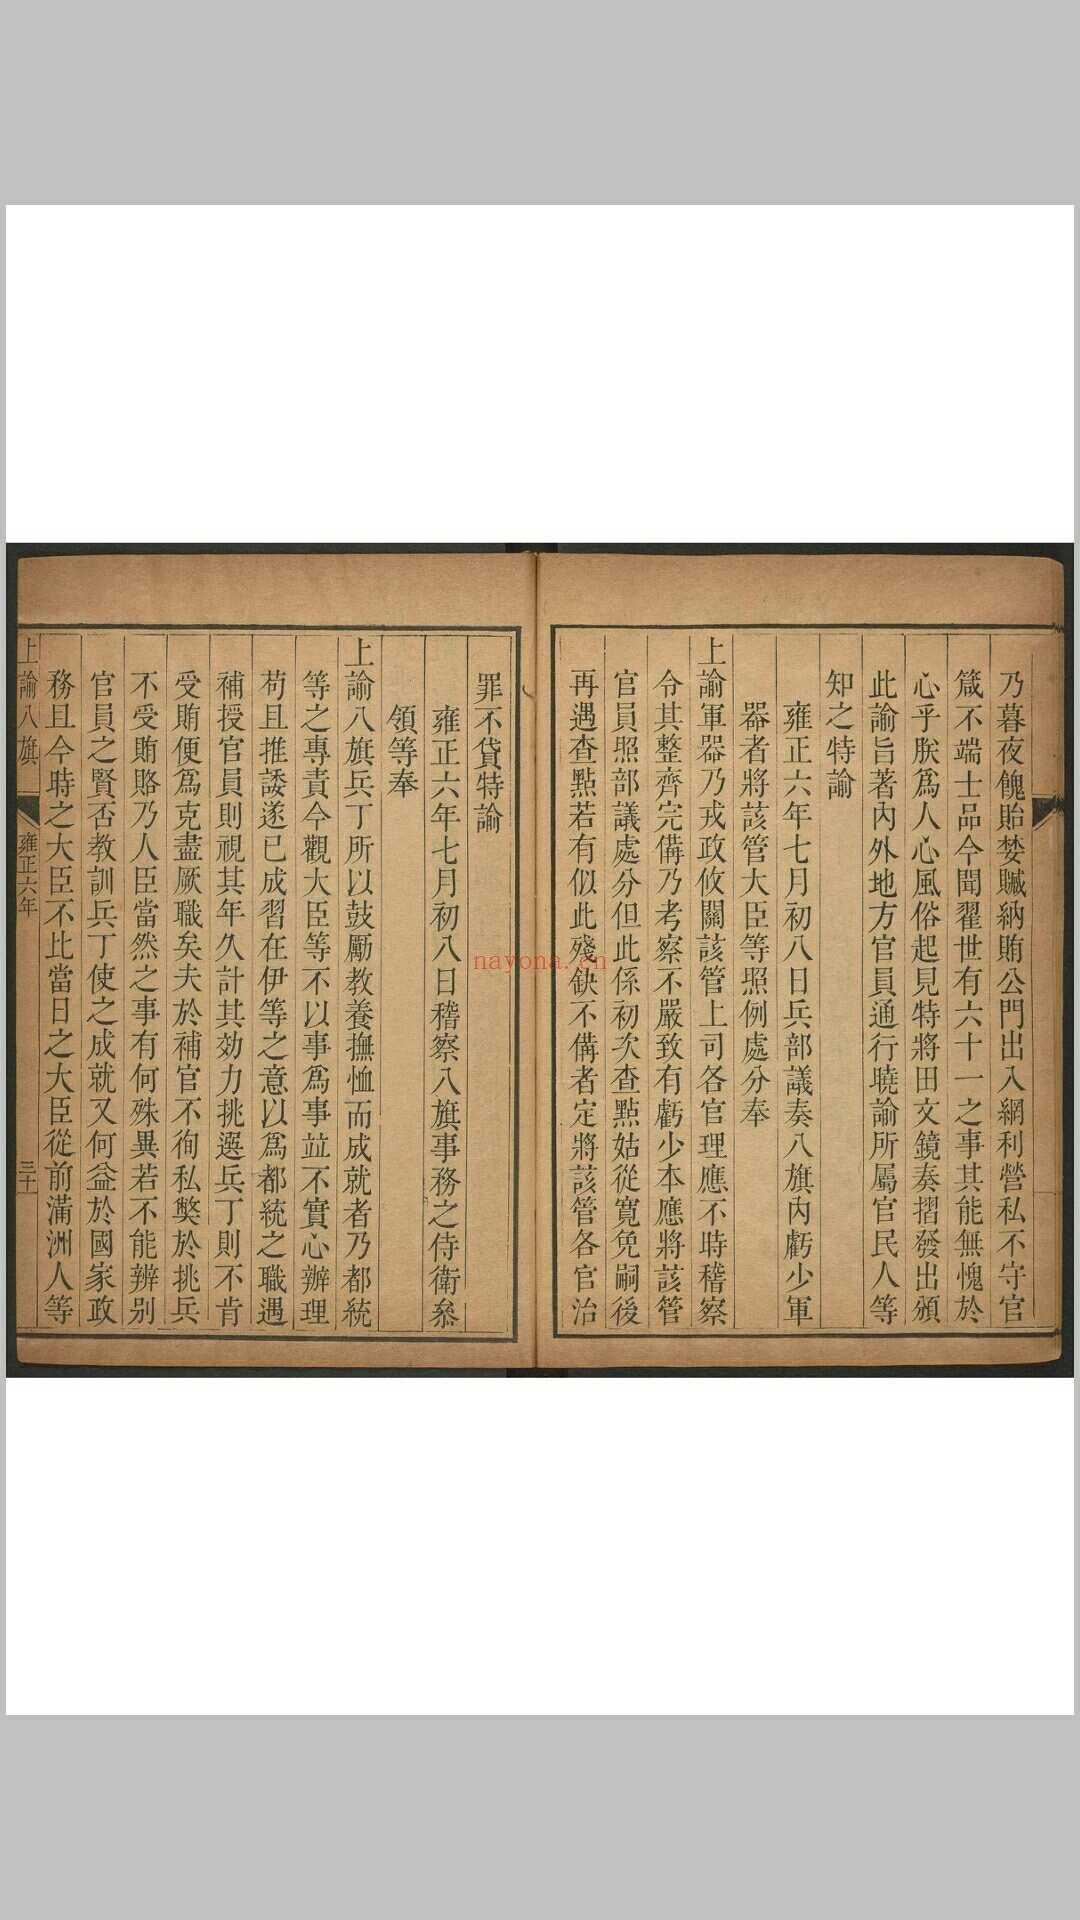 乃暮夜餽貽婪贓納賄公門出入網利營私不守官
箴不端士品今聞翟世有六十一之事其能無愧於
心乎朕爲人心風俗起見特將田文鏡奏摺發出頒
此諭旨著內外地方官員通行曉諭所屬官民人等
知之特諭
雍正六年七月初八日兵部議奏八旗內虧少軍
器者將該管大臣等照例處分奉
上諭軍器乃戎政攸關該管上司各官理應不時稽察
令其整齊完備乃考察不嚴致有虧少本應將該管
官員照部議處分但此係初次查點姑從寬免嗣後
再遇查點若有似此殘缺不備者定將該管各官治
罪不貸特諭
雍正六年七月初八日稽察八旗事務之侍衛叅
領等奉
上諭八旗兵丁所以鼓勵教養撫恤而成就者乃都統
等之專責今觀大臣等不以事爲事竝不實心辦理
苟且推諉遂已成習在伊等之意以爲都統之職遇
補授官員則視其年久計其効力挑選兵丁則不肯
受賄便爲克盡厥職矣夫於補官不徇私獘於挑兵
不受賄賂乃人臣當然之事有何殊異若不能辨别
官員之賢否教訓兵丁使之成就又何益於國家政
務且今時之大臣不比當日之大臣從前滿洲人等
上諭八旗 雍正六年 三十
nayona.cn